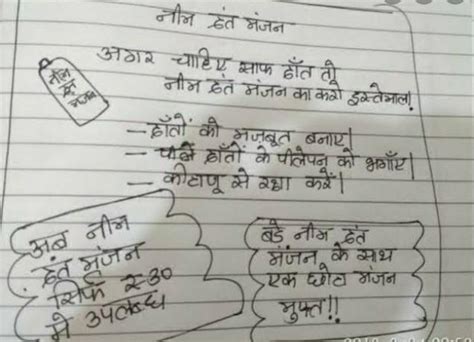 नीम दंत मंजन
अगर चाहिए साफ दाँत तो
नीम दंत मंजन का करो इस्तेमाल!
नीम
दंत
मंजन
— दाँतों को मजबूत बनाए।
— पीले दाँतों के पीलेपन को भगाए।
— कीटाणु से रक्षा करें।
अब नीम
दंत मंजन
सिर्फ रु-30
मे उपलब्ध
बडे नीम दंत
मंजन के साथ
एक छोटा मंजन
मुफ्त!!